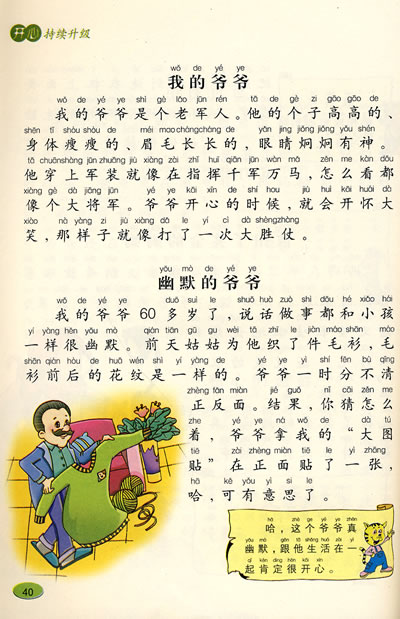 开心 持续升级
wǒ de yé ye
我的爷爷
wǒ de yé ye shì gè lǎo jūn rén tā de gè zi gāo gāo de
我的爷爷是个老军人。他的个子高高的、
shēn tǐ shòu shòu de méi mao cháng cháng de yǎn jing jiǒng jiǒng yǒu shén
身体瘦瘦的、眉毛长长的，眼睛炯炯有神。
tā chuān shàng jūn zhuāng jiù xiàng zài zhǐ huī qiān jūn wàn mǎ zěn me kàn dōu
他穿上军装就像在指挥千军万马，怎么看都
xiàng gè dà jiāng jūn yé ye kāi xīn de shí hou jiù huì kāi huái dà
像个大将军。爷爷开心的时候，就会开怀大
xiào nà yàng zi jiù xiàng dǎ le yí cì dà shèng zhàng
笑，那样子就像打了一次大胜仗。
yōu mò de yé ye
幽默的爷爷
wǒ de yé ye duō suì le shuō huà zuò shì dōu hé xiǎo hái
我的爷爷60多岁了，说话做事都和小孩
yí yàng hěn yōu mò qián tiān gū gu wèi tā zhī le jiàn máo shān máo
一样很幽默。前天姑姑为他织了件毛衫，毛
shān qián hòu de huā wén shì yí yàng de yé ye yì shí fēn bù qīng
衫前后的花纹是一样的。爷爷一时分不清
zhèng fǎn miàn jié guǒ nǐ cāi zěn me
正反面。结果，你猜怎么
zhe yé ye ná wǒ de dà tú
着，爷爷拿我的“大图
tiē zài zhèng miàn tiē le yì zhāng
贴”在正面贴了一张，
hā kě yǒu yì si le
哈，可有意思了。
hā zhè ge yé ye zhēn
哈，这个爷爷真
yōu mò gēn tā shēng huó zài yì
幽默，跟他生活在一
qǐ kěn dìng hěn kāi xīn
起肯定很开心。
40